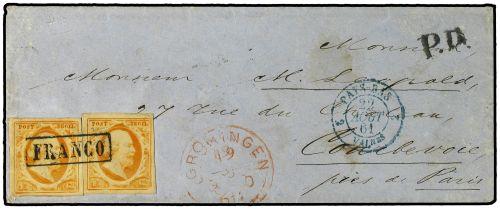 Monsieur
P.D.
Monsieur M. Leopold,
27 rue du
Courbevoie
près de Paris
POST ZEGEL POST ZEGEL
FRANCO
GRONINGEN
PAYS-BAS
22
AOUT
61
2 VALnes 2